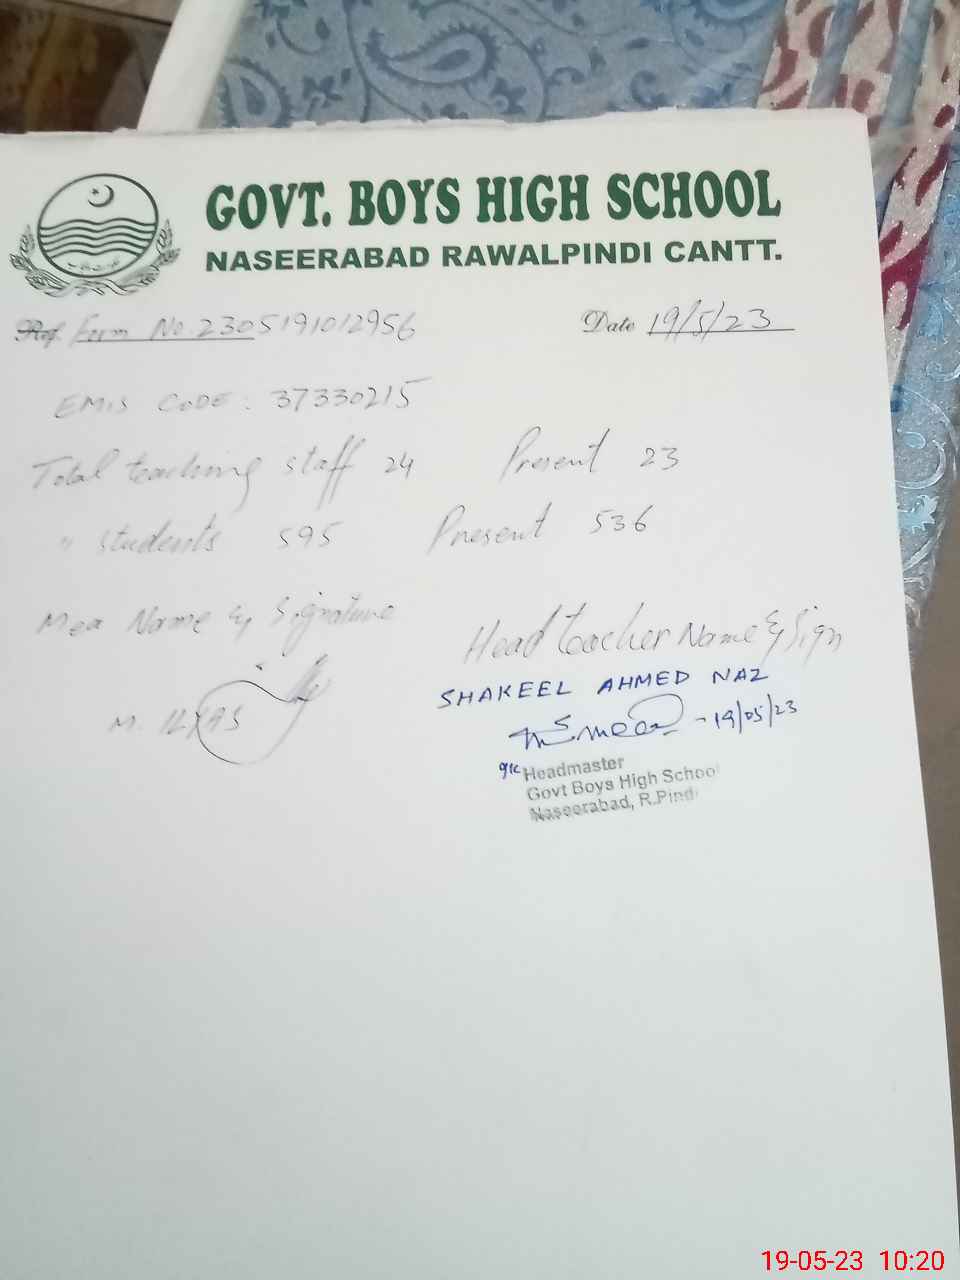 GOVT. BOYS HIGH SCHOOL
NASEERABAD RAWALPINDI CANTT.
Ref. Form No. 2305191012956 Date 19/5/23
EMIS CODE: 37330215
Total teaching staff 24 Present 23
" students 595 Present 536
Mea Name & Signature
Head teacher Name & Sign
SHAKEEL AHMED NAZ
M. ILYAS
- 19/05/23
Headmaster
Govt Boys High School
Naseerabad, R.Pindi
19-05-23 10:20